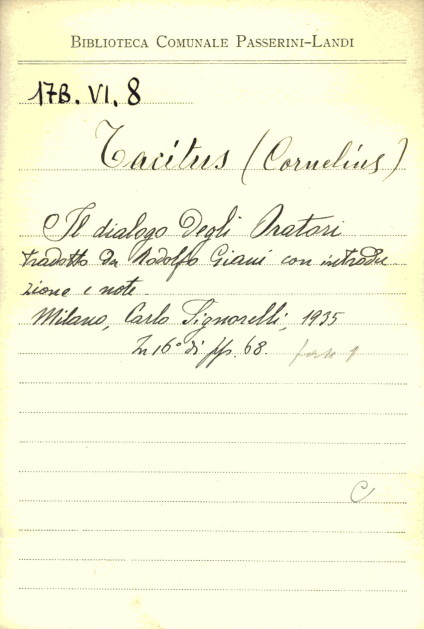 BIBLIOTECA COMUNALE PASSERINI-LANDI
17B. VI. 8
Tacitus (Cornelius)
Il dialogo degli Oratori
tradotto da Rodolfo Giani con introdu
zione e note
Milano, Carlo Signorelli, 1935
In 16° di pp. 68.
C